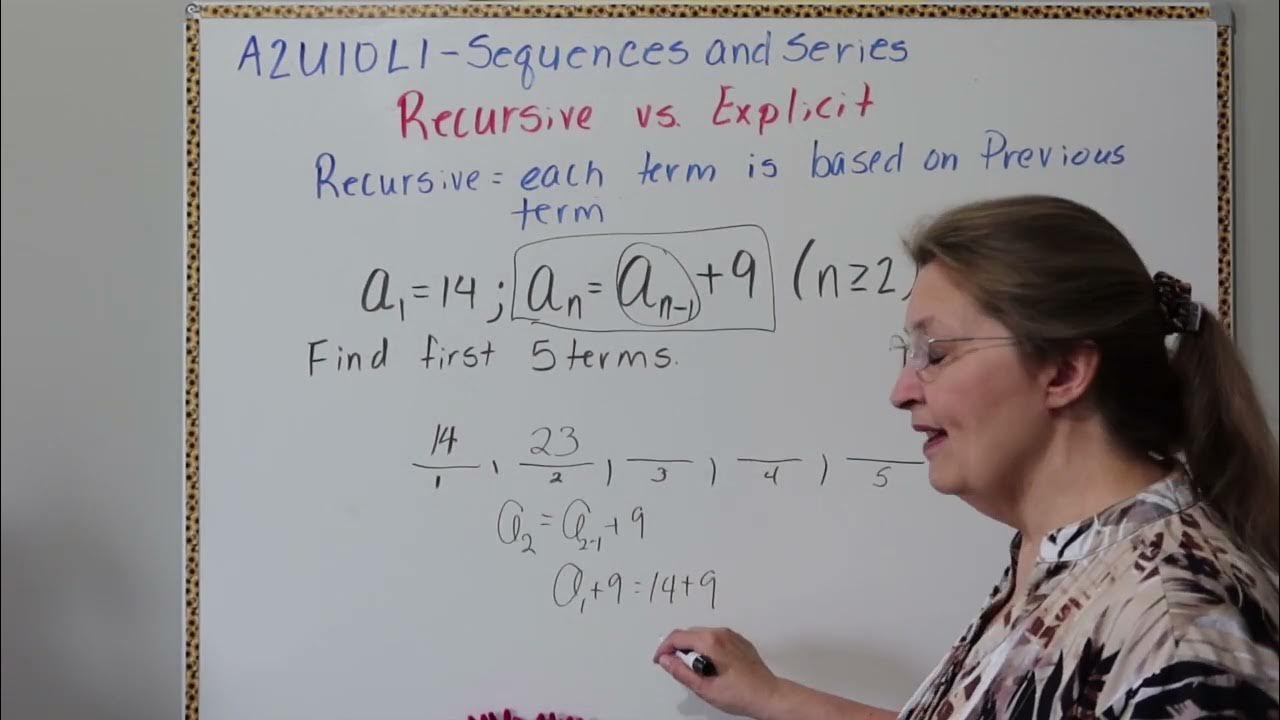 A2U10L1-Sequences and Series
Recursive vs. Explicit
Recursive = each term is based on Previous
term
a₁=14; aₙ=aₙ₋₁+9 (n≥2)
Find first 5 terms.
14, 23, , ,
1 2 3 4 5
a₂=a₂₋₁+9
a₁+9=14+9